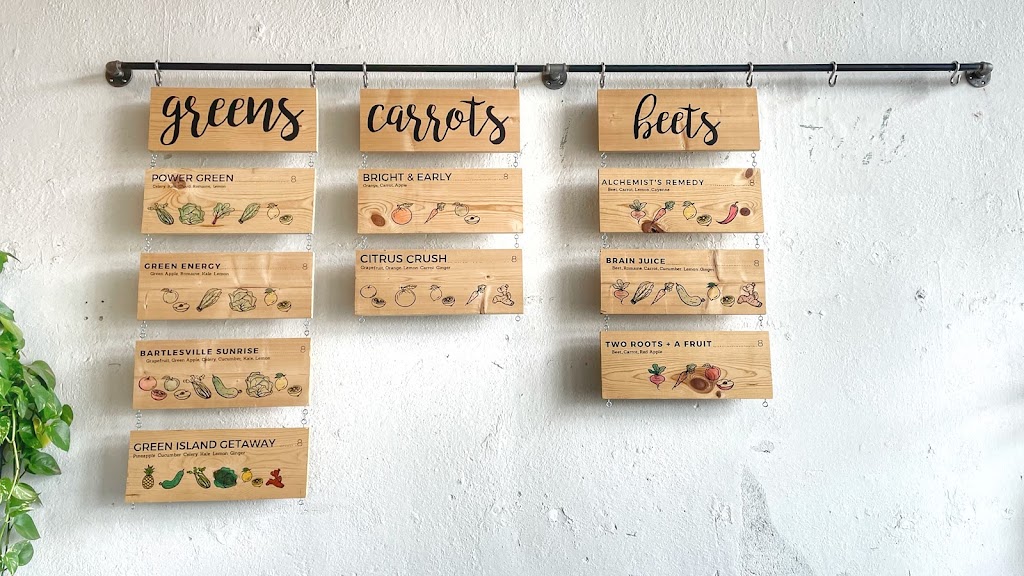 greens
POWER GREEN 8
Celery, Kale, Chard, Romaine, Lemon
GREEN ENERGY 8
Green Apple, Romaine, Kale, Lemon
BARTLESVILLE SUNRISE 8
Grapefruit, Green Apple, Celery, Cucumber, Kale, Lemon
GREEN ISLAND GETAWAY 8
Pineapple, Cucumber, Celery, Kale, Lemon, Ginger
carrots
BRIGHT & EARLY 8
Orange, Carrot, Apple
CITRUS CRUSH 8
Grapefruit, Orange, Lemon, Carrot, Ginger
beets
ALCHEMIST'S REMEDY 8
Beet, Carrot, Lemon, Cayenne
BRAIN JUICE 8
Beet, Romaine, Carrot, Cucumber, Lemon, Ginger
TWO ROOTS + A FRUIT 8
Beet, Carrot, Red Apple